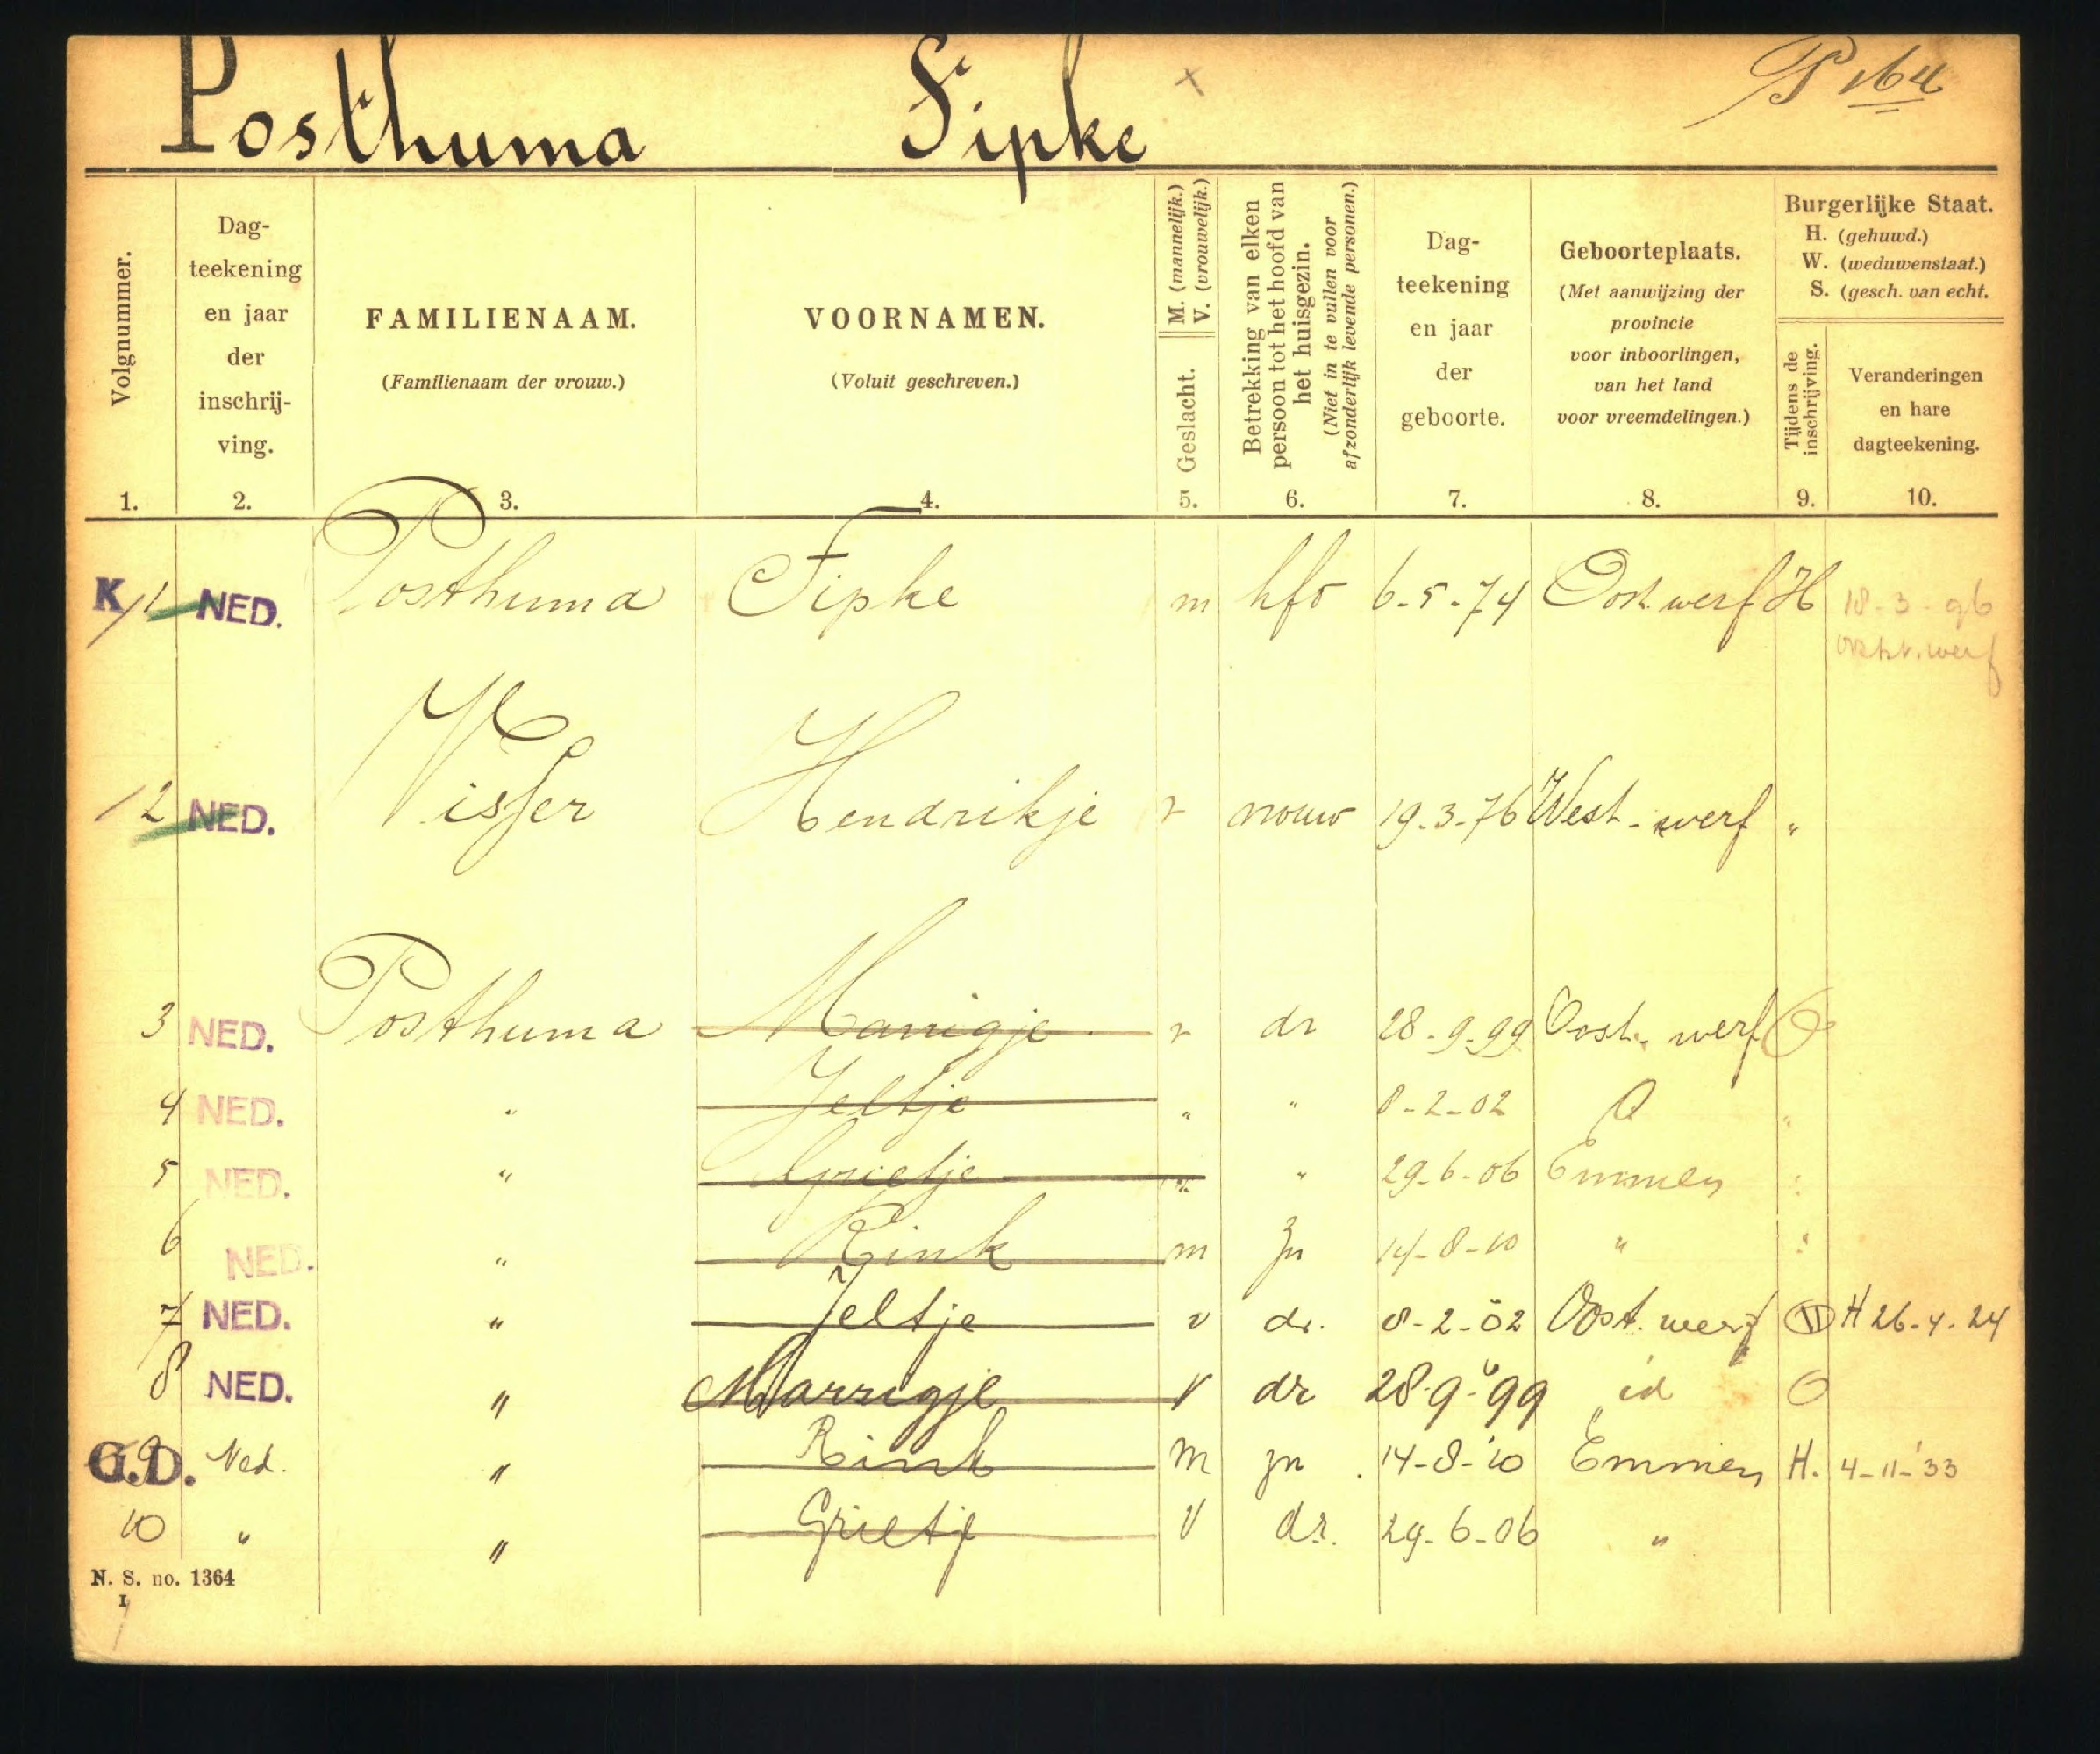 Posthuma Sipke x P 164
Volgnummer.
Dag-
teekening
en jaar
der
inschrij-
ving.
FAMILIENAAM.
(Familienaam der vrouw.)
VOORNAMEN.
(Voluit geschreven.)
Geslacht.
M. (mannelijk.)
V. (vrouwelijk.)
Betrekking van elken
persoon tot het hoofd van
het huisgezin.
(Niet in te vullen voor
afzonderlijk levende personen.)
Dag-
teekening
en jaar
der
geboorte.
Geboorteplaats.
(Met aanwijzing der
provincie
voor inboorlingen,
van het land
voor vreemdelingen.)
Burgerlijke Staat.
H. (gehuwd.)
W. (weduwenstaat.)
S. (gesch. van echt.
Tijdens de
inschrijving.
Veranderingen
en hare
dagteekening.
1. 2. 3. 4. 5. 6. 7. 8. 9. 10.
K 1 NED. Posthuma Sipke m hfd 6-5-74 Oost.werf H 18-3-96
Oostst.werf
2 NED. Visser Hendrikje v vrouw 19-3-76 West-werf "
3 NED. Posthuma Marrigje v dr 28-9-99 Oost-werf O
4 NED. " Jeltje " " 8-2-02 "
5 NED. " Grietje " " 29-6-06 Emmen "
6 NED. " Rink m zn 14-8-10 " "
7 NED. " Jeltje v dr. 8-2-02 Oost.werf H 26-4-24
8 NED. " Marrigje V dr 28-9-99 id O
G.D. 9 Ned. " Rink m zn 14-8-'10 Emmen H. 4-11-'33
10 " " Grietje V dr. 29-6-06 "
N. S. no. 1364
I